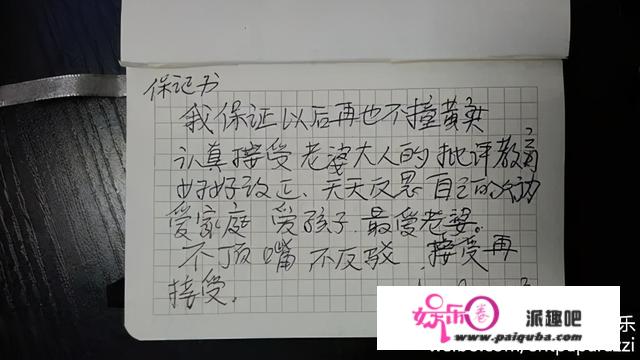 保证书
我保证以后再也不撞黄灯
认真接受老婆大人的批评教育
好好改正、天天反思自己的
爱家庭 爱孩子 最爱老婆。
不顶嘴 不反驳 接受再
接受。
娱乐卷 派趣吧
www.paiquba.com
乐